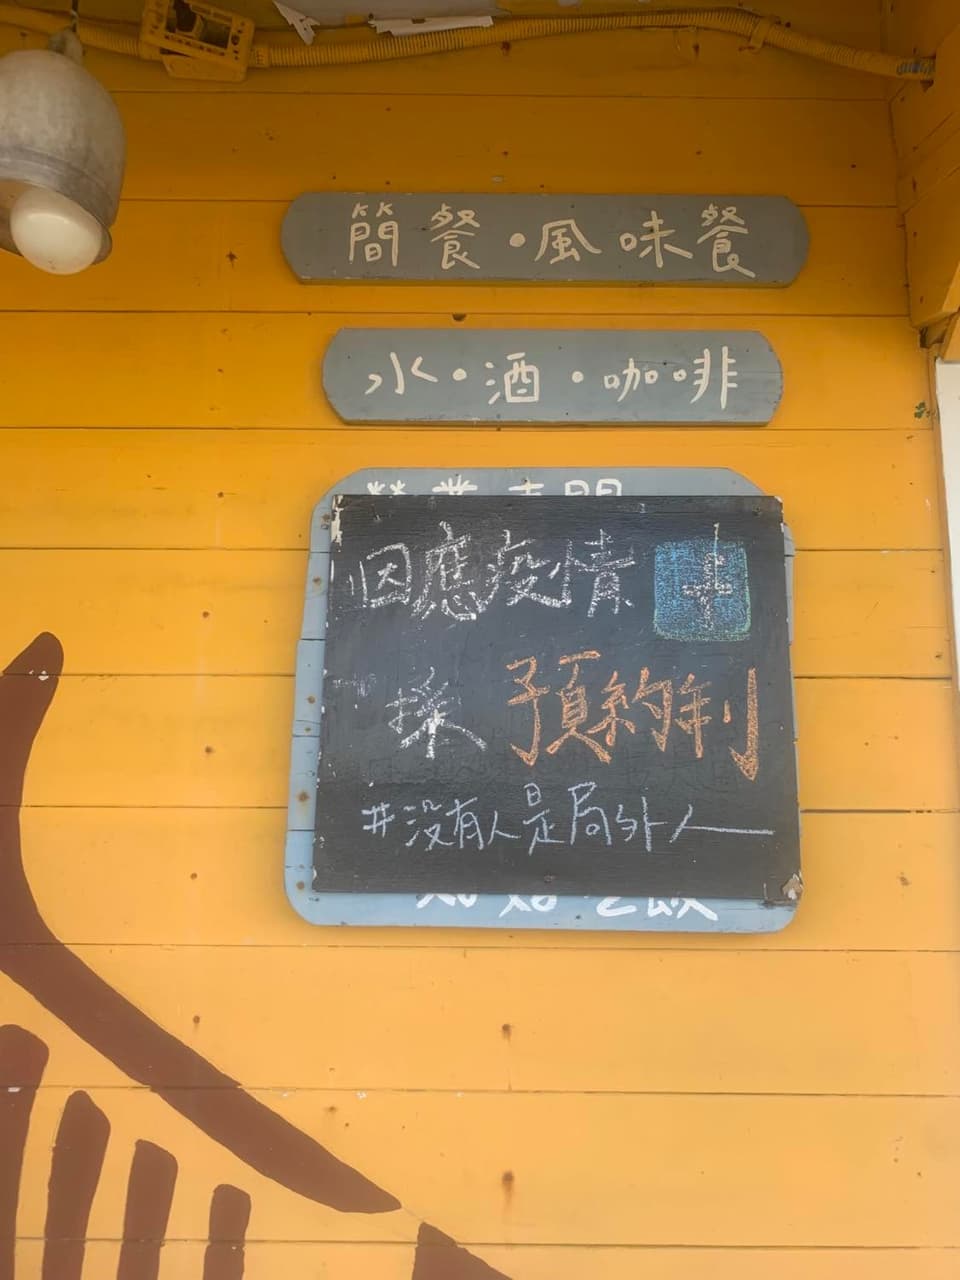 簡餐·風味餐
水·酒·咖啡
因應疫情
採預約制
#沒有人是局外人